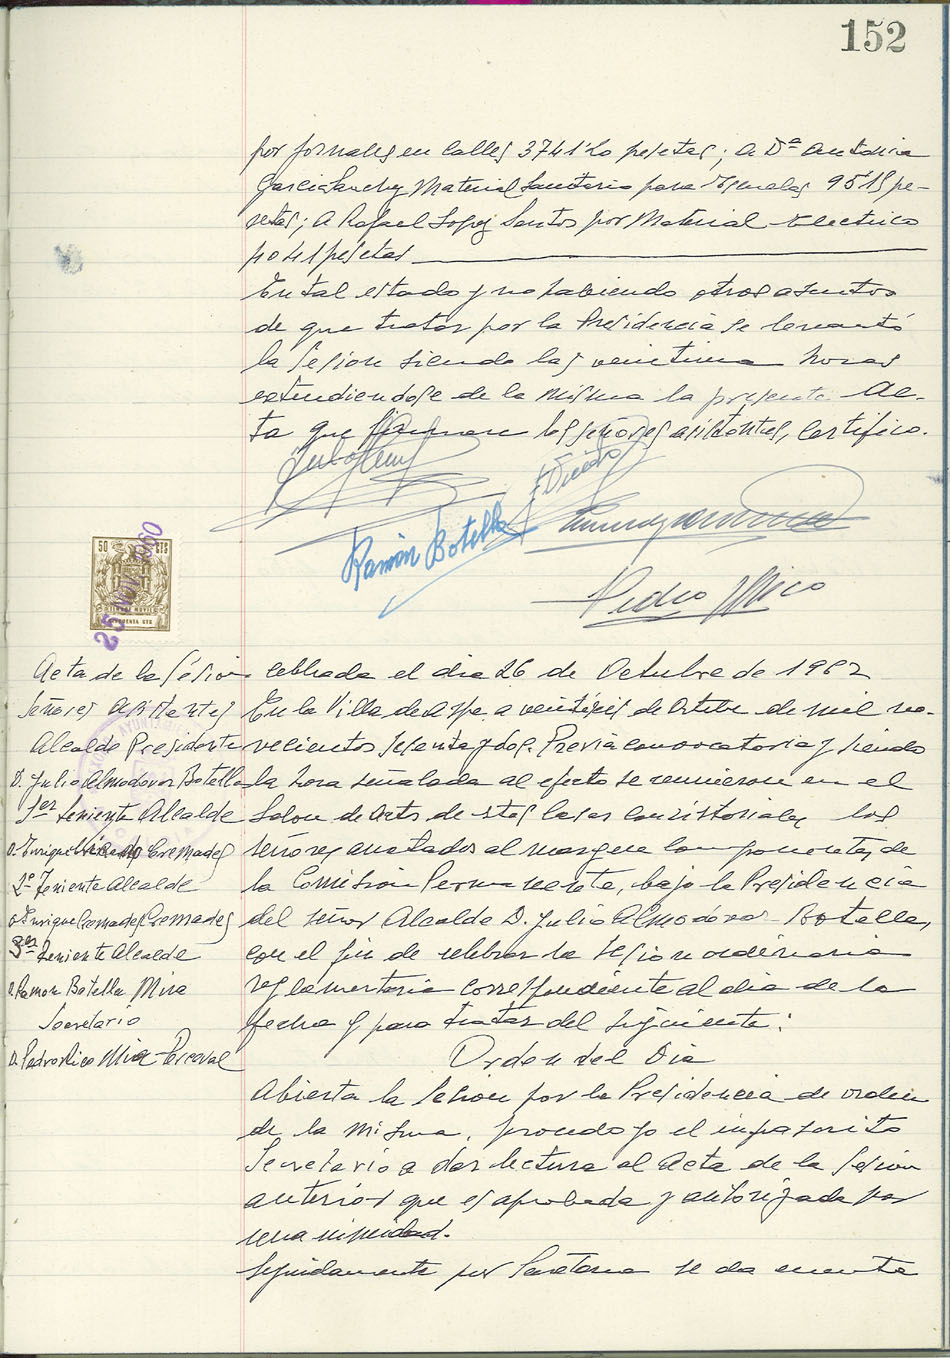 152
por jornales en calles 3741'20 pesetas; a Dª Antonia
Garcia Sanchez Material Sanitario para Escuelas 95'15 pe-
setas; a Rafael Lopez Santos por Material Electrico
pesetas
En tal estado y no habiendo otros asuntos
de que tratar por la Presidencia se levantó
la sesion siendo las veintiuna horas
extendiendose de la misma la presente Ac-
ta que firman los señores asistentes, certifico.
Ramón Botella
Pedro Rico
50 CTS
25 NOV 1960
Acta de la Sesion celebrada el dia 26 de Octubre de 1962
Señores asistentes
Alcalde Presidente
D. Julio Almodovar Botella
1er Teniente Alcalde
D. Enrique Cremades
2º Teniente Alcalde
D. Enrique Cremades Cremades
3er Teniente Alcalde
D. Ramon Botella Mira
Secretario
D. Pedro Rico Mira-Perceval
En la Villa de Aspe a veintiseis de Octubre de mil no-
vecientos sesenta y dos. Previa convocatoria y siendo
la hora señalada al efecto se reunieron en el
Salon de Actos de estas Casas Consistoriales los
señores anotados al margen componentes de
la Comision Permanente, bajo la Presidencia
del señor Alcalde D. Julio Almodovar Botella,
con el fin de celebrar la sesion ordinaria
reglamentaria correspondiente al dia de la
fecha y para tratar del siguiente:
Orden del Dia
Abierta la Sesion por la Presidencia de orden
de la misma, procedo yo el infrascrito
Secretario a dar lectura al Acta de la Sesion
anterior que es aprobada y autorizada por
unanimidad.
Seguidamente por Secretaria se da cuenta